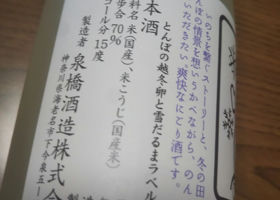 いのちを繋ぐストーリーと、冬の田
んぼの情景を想いうかべながら、のん
いただきたい。爽快なにごり酒です。
とんぼの越冬卵と雪だるまラベル
本酒
料名 米(国産)、米こうじ(国産米)
歩合 70%
コール分 15度
製造者 泉橋酒造株式会
神奈川県海老名市下今泉五ー